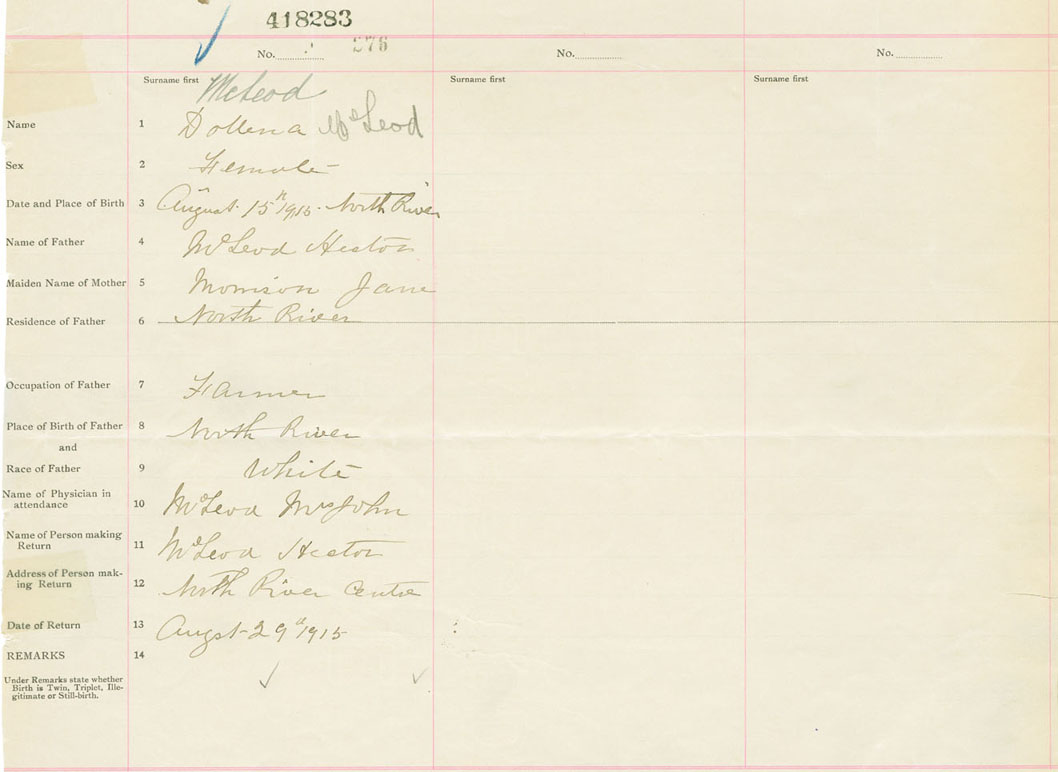 418283
No. 276 No. No.
Surname first Surname first Surname first
McLeod
Name 1 Dollena McLeod
Sex 2 Female
Date and Place of Birth 3 August 15th 1915. North River
Name of Father 4 McLeod Hector
Maiden Name of Mother 5 Morrison Jane
Residence of Father 6 North River
Occupation of Father 7 Farmer
Place of Birth of Father 8 North River
and
Race of Father 9 White
Name of Physician in
attendance 10 McLeod Mrs John
Name of Person making
Return 11 McLeod Hector
Address of Person mak-
ing Return 12 North River Centre
Date of Return 13 Augst 29th 1915
REMARKS 14
Under Remarks state whether
Birth is Twin, Triplet, Ille-
gitimate or Still-birth.